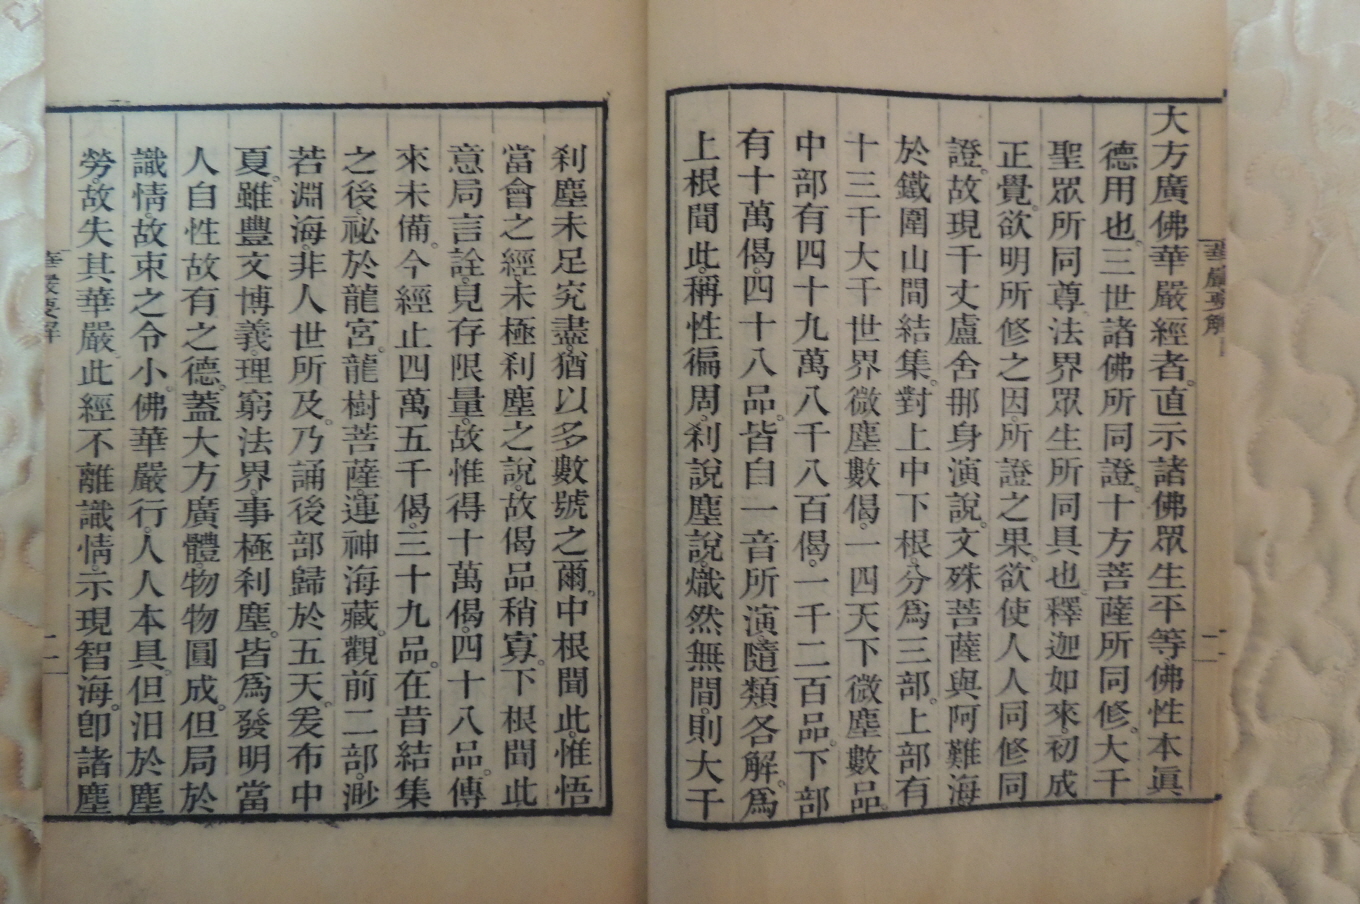 大方廣佛華嚴經者。直示諸佛眾生平等佛性本眞
德用也。三世諸佛所同證。十方菩薩所同修。大千
聖眾所同尊。法界眾生所同具也。釋迦如來。初成
正覺。欲明所修之因。所證之果。欲使人人同修同
證。故現千丈盧舍那身演說。文殊菩薩與阿難海
於鐵圍山間結集。對上中下根。分爲三部。上部有
十三千大千世界微塵數偈。一四天下微塵數品。
中部有四十九萬八千八百偈。一千二百品。下部
有十萬偈。四十八品。皆自一音所演。隨類各解。爲
上根聞此。稱性徧周。刹說塵說。熾然無間。則大千
刹塵未足究盡。猶以多數號之爾。中根聞此。惟悟
當會之經。未極刹塵之說。故偈品稍寡。下根聞此
意局言詮。見存限量。故惟得十萬偈。四十八品。傳
來未備。今經止四萬五千偈。三十九品。在昔結集
之後。祕於龍宮。龍樹菩薩。運神海藏。觀前二部。渺
若淵海。非人世所及。乃誦後部歸於五天。爰布中
夏。雖豐文博義。理窮法界。事極刹塵。皆爲發明當
人自性故有之德。蓋大方廣體。物物圓成。但局於
識情。故束之令小。佛華嚴行。人人本具。但汨於塵
勞。故失其華嚴。此經不離識情。示現智海。卽諸塵
華嚴要解
二